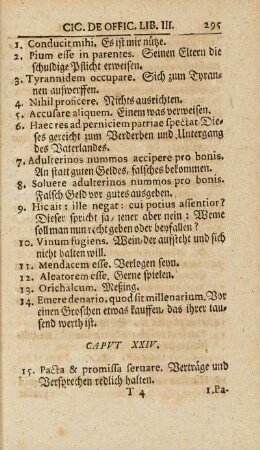 CIC. DE OFFIC. LIB. III. 295
1. Conducit mihi. Es ist mir nütze.
2. Pium esse in parentes. Seinen Eltern die
schuldige Pflicht erweisen.
3. Tyrannidem occupare. Sich zum Tyran-
nen auffwerffen.
4. Nihil proficere. Nichts ausrichten.
5. Accusare aliquem. Einem was verweisen.
6. Haec res ad perniciem patriae spectat. Die-
ses gereicht zum Verderben und Untergang
des Vaterlandes.
7. Adulterinos nummos accipere pro bonis.
An statt guten Geldes, falsches bekommen.
8. Soluere adulterinos nummos pro bonis.
Falsch Geld vor gutes ausgeben.
9. Hic ait: ille negat: cui potius assentior?
Dieser spricht ja, jener aber nein: Weme
soll man nun recht geben oder beyfallen?
10. Vinum fugiens. Wein, der auffsteht und sich
nicht halten will.
11. Mendacem esse. Verlogen seyn.
12. Aleatorem esse. Gerne spielen.
13. Orichalcum. Meßing.
14. Emere denario, quod sit millenarium. Vor
einen Groschen etwas kauffen, das ihrer tau-
send werth ist.
CAPVT XXIV.
15. Pacta & promissa seruare. Verträge und
Versprechen redlich halten.
T 4 1. Pa-